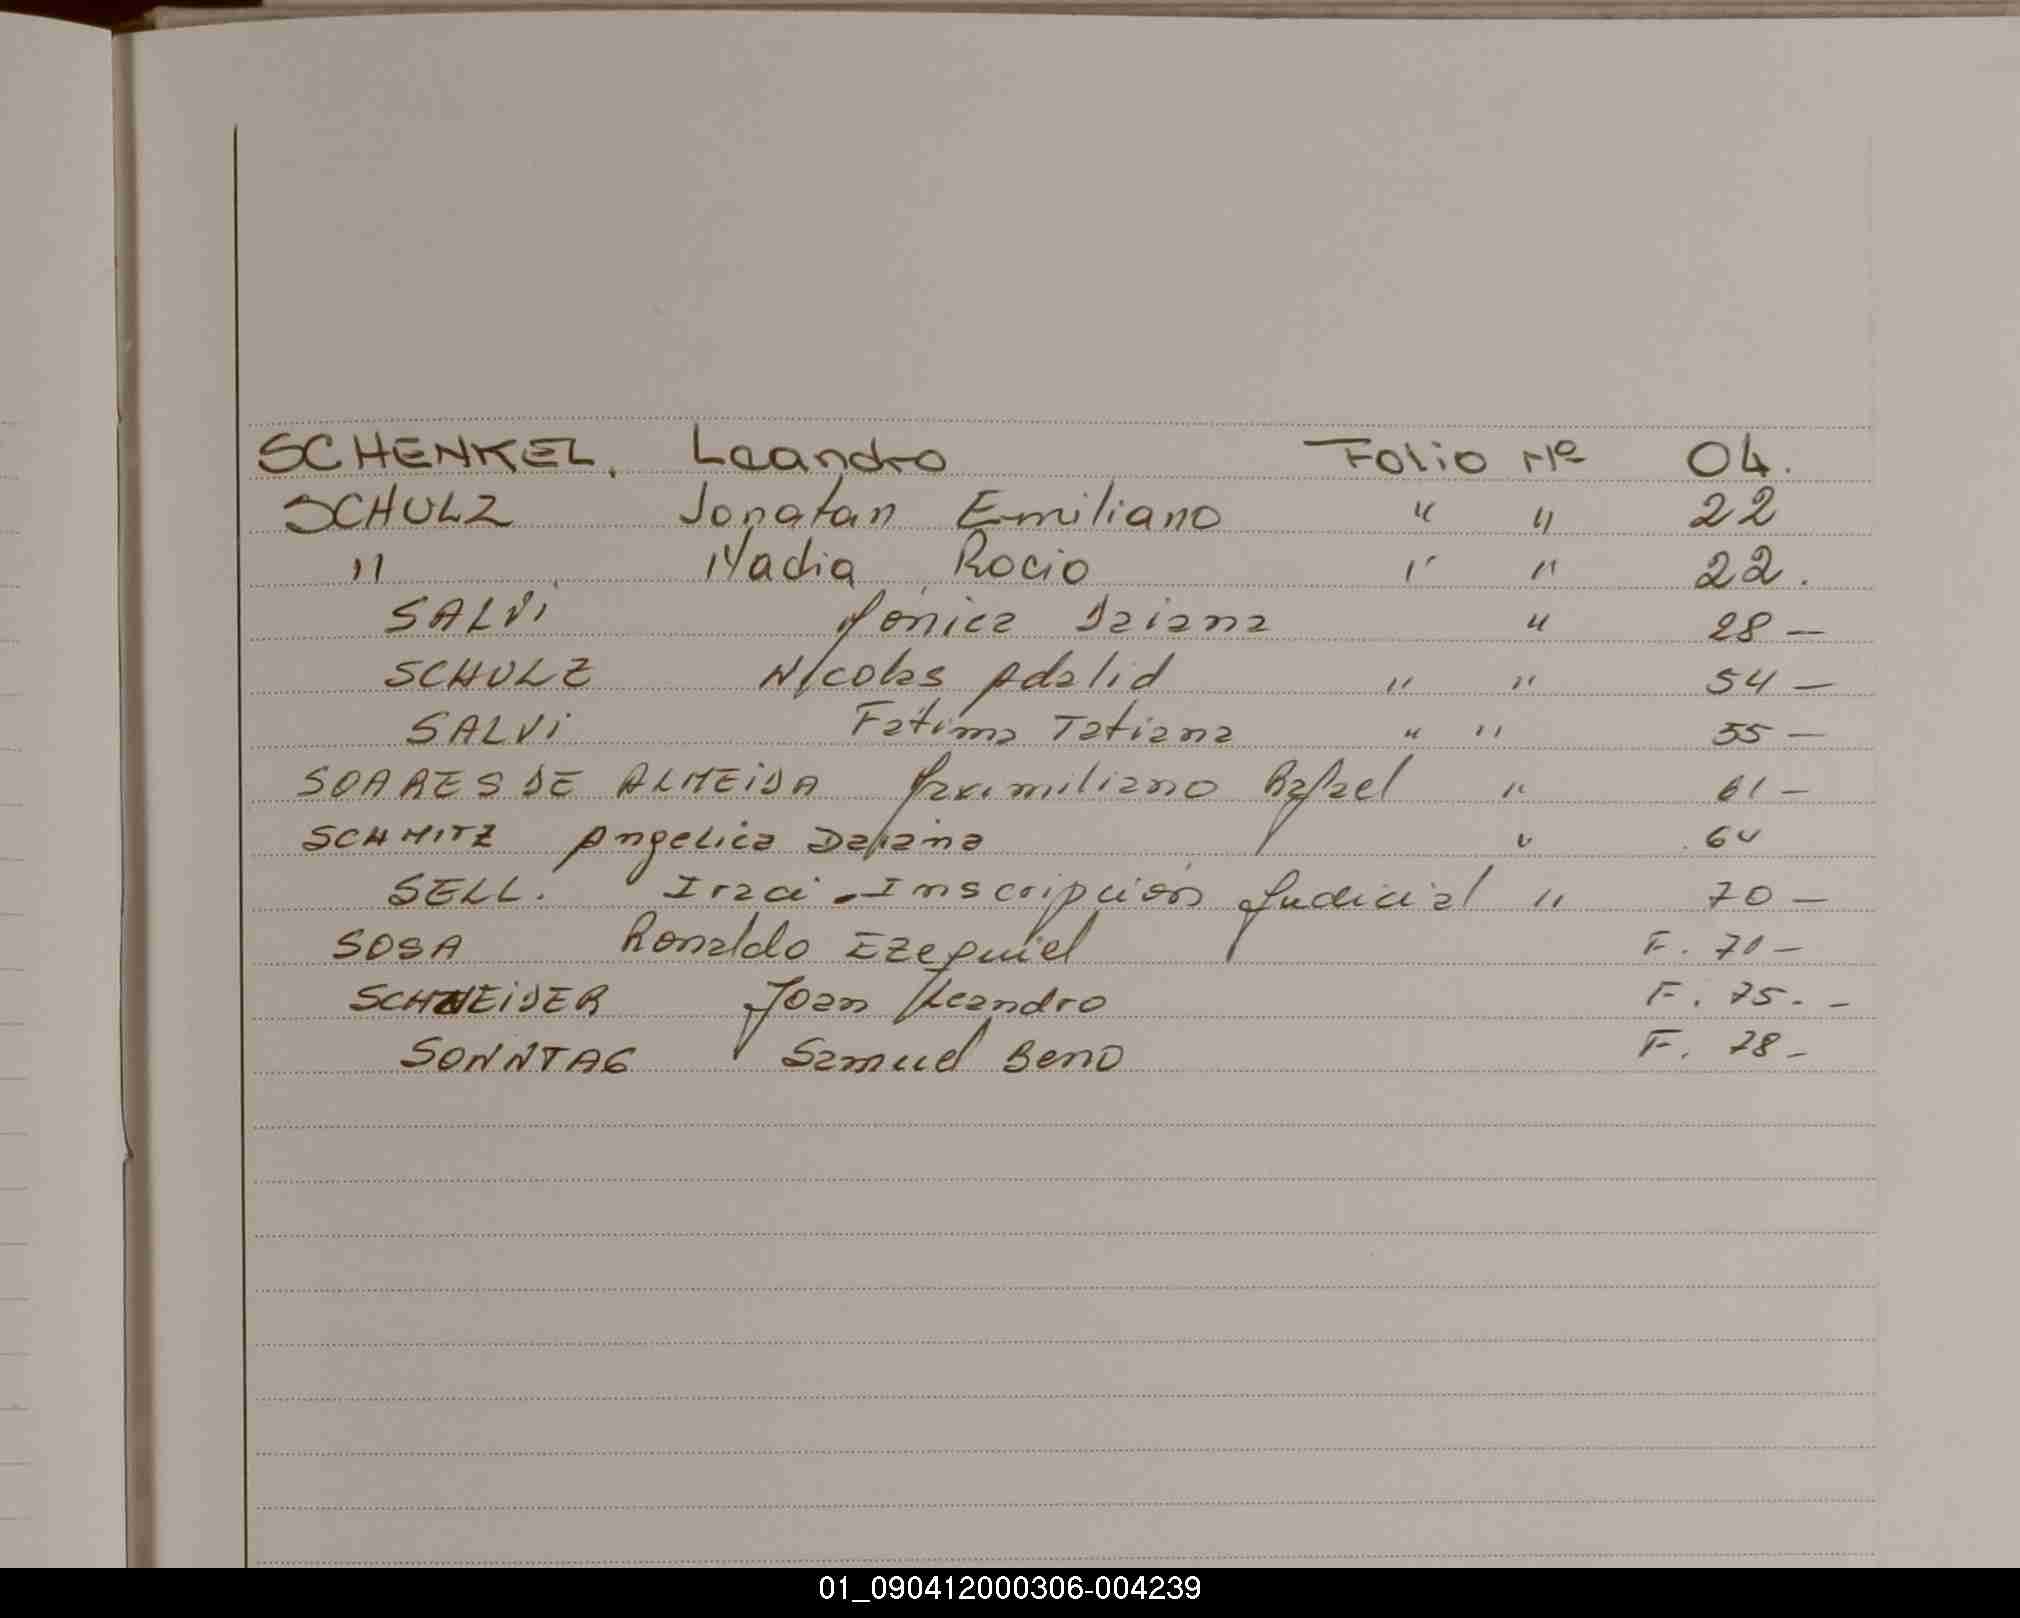 SCHENKEL, Leandro Folio Nº 04.
SCHULZ Jonatan Emiliano " " 22
" Nadia Rocio " " 22.
SALVi Mónica Daiana " 28 -
SCHULZ Nicolas Adalid " " 54 -
SALVi Fatima Tatiana " " 55 -
SOARES DE ALMEiDA Maximiliano Rafael " 61 -
SCHMITZ Angelica Daiana " 64
SELL. Iraci - Inscripción Judicial " 70 -
SOSA Ronaldo Ezequiel F. 70 -
SCHNEiDER Joan Leandro F. 75. -
SONNTAG Samuel Beno F. 78 -
01_090412000306-004239